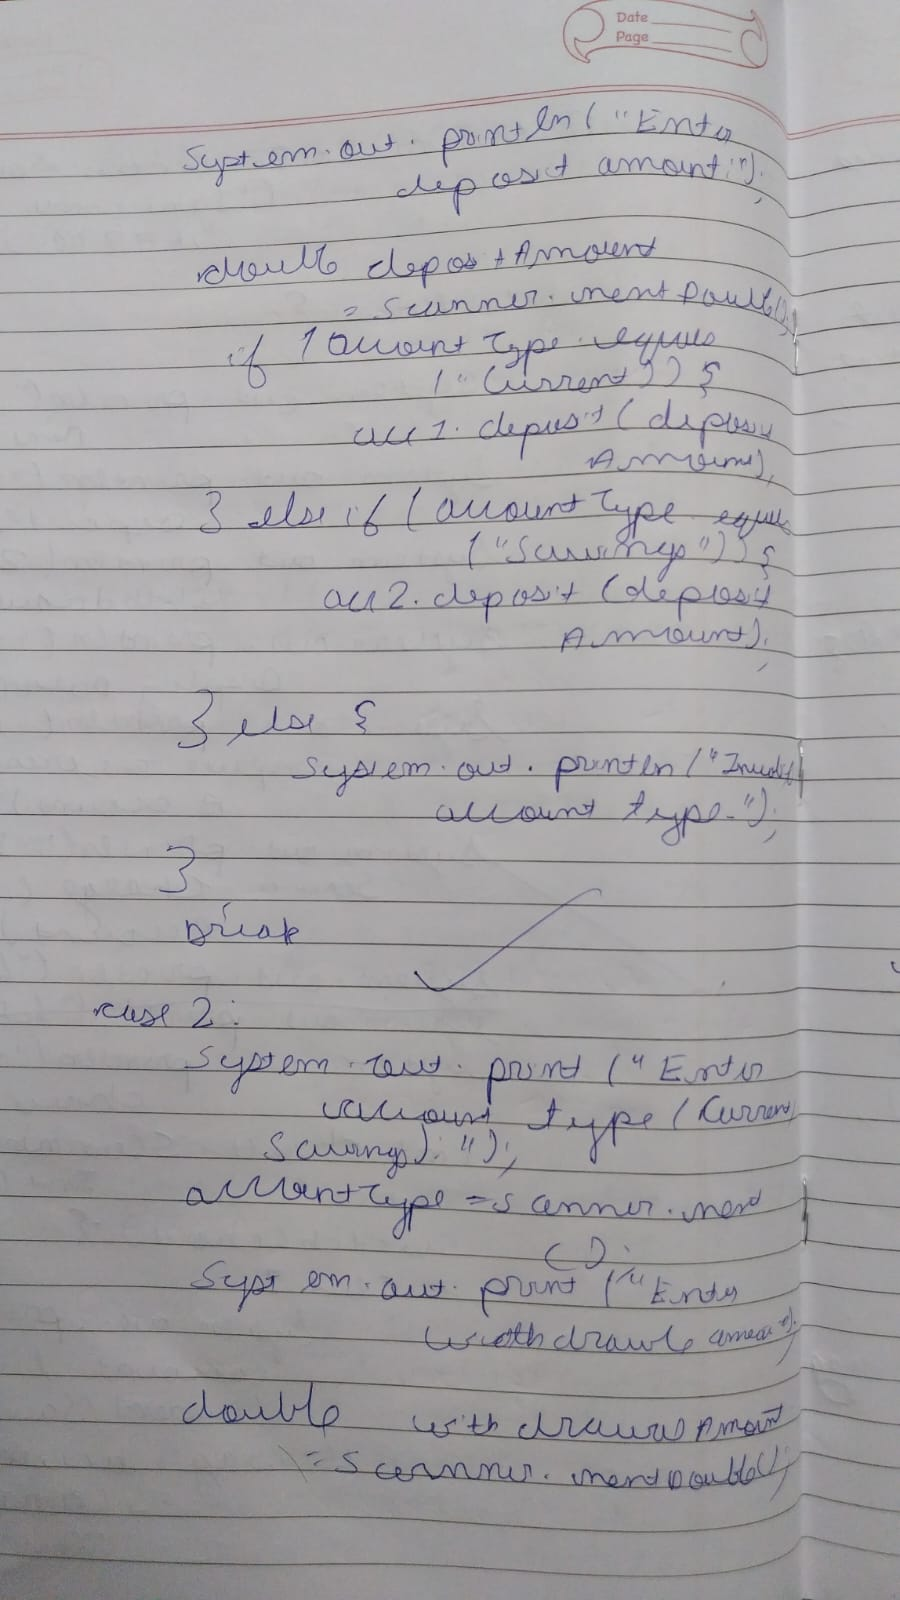 Date
Page
System.out.println("Enter
deposit amount:");
double depositAmount
= scanner.nextDouble();
if (accountType.equals
("Current")) {
acc1.deposit(deposit
Amount);
} else if (accountType.equals
("Savings")) {
acc2.deposit(deposit
Amount);
} else {
System.out.println("Invalid
account type.");
}
break
case 2:
System.out.print("Enter
account type (Current
Savings): ");
accountType = scanner.next
();
System.out.print("Enter
withdrawl amou");
double withdrawlAmount
= scanner.nextDouble();